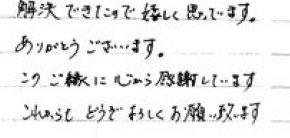 解決できたので嬉しく思っています。
ありがとうございます。
このご縁に心から感謝しています
これからもどうぞよろしくお願い致します